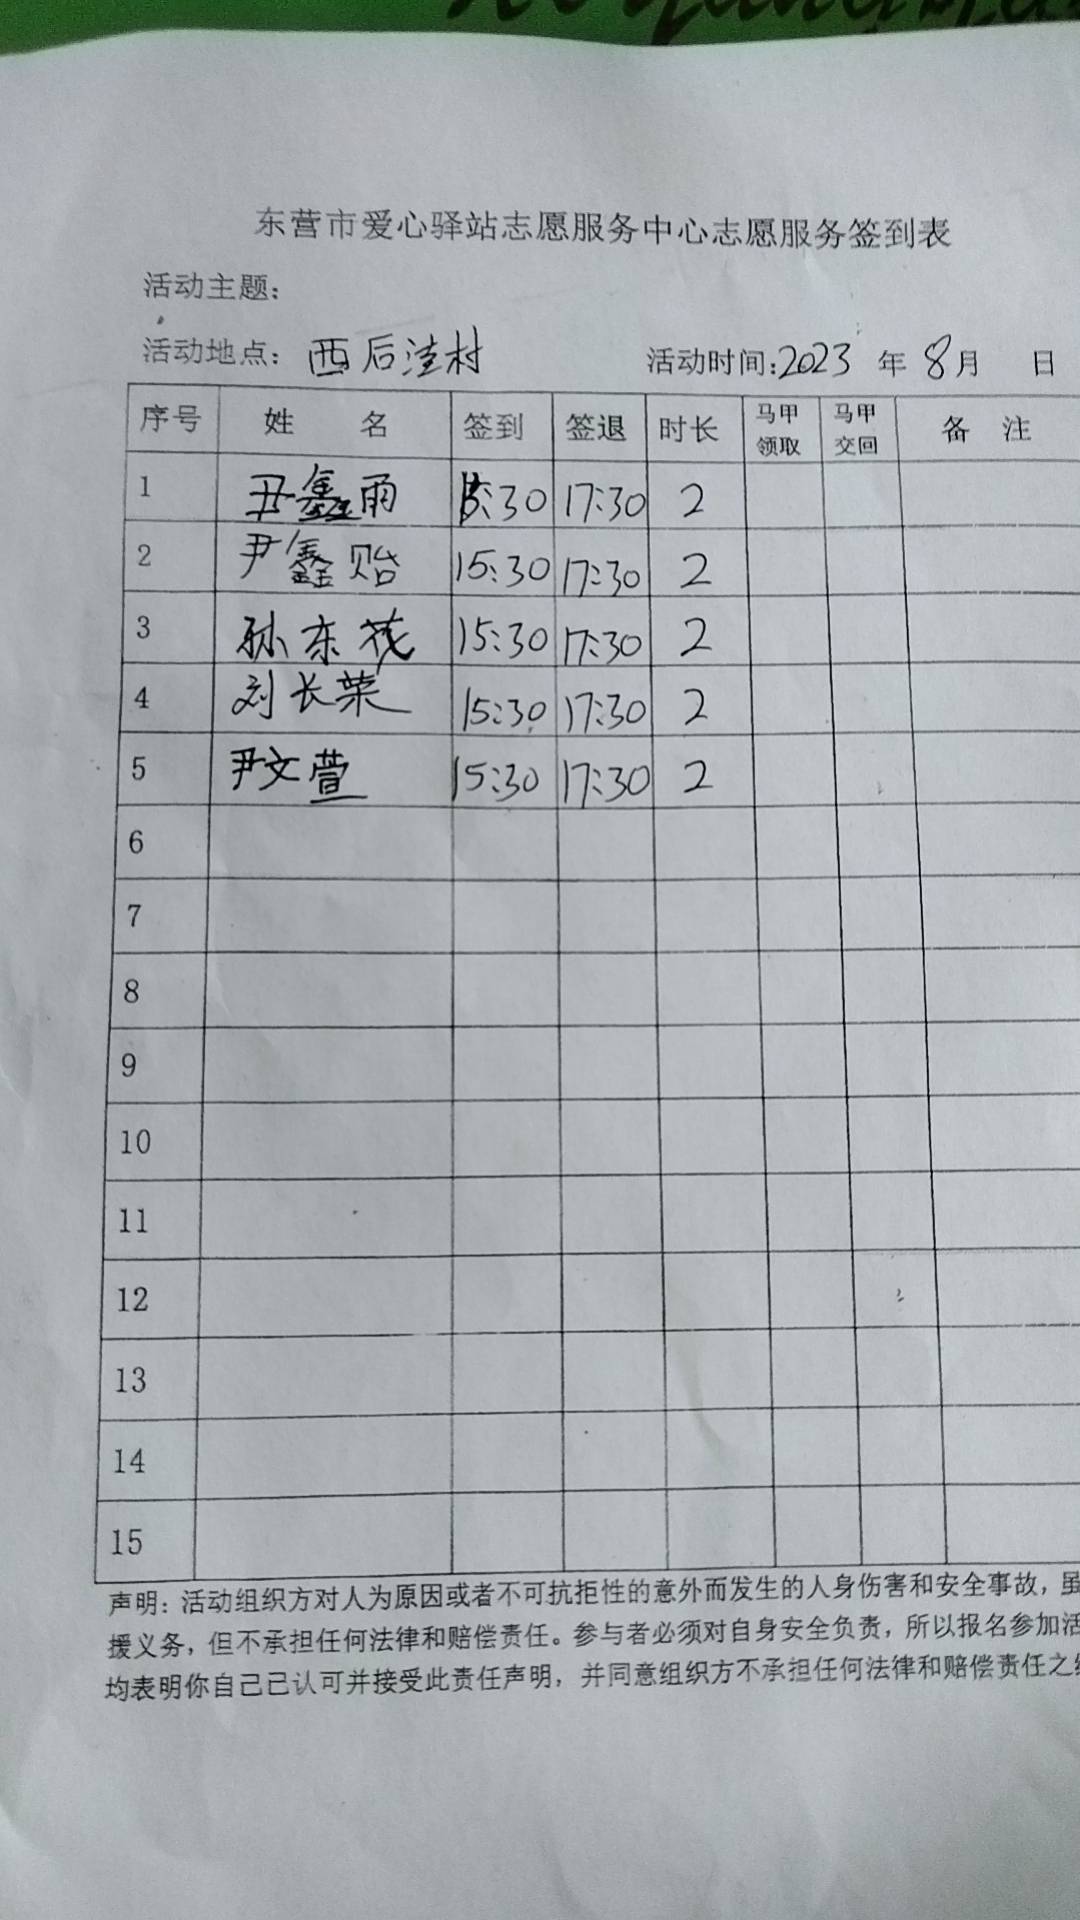 东营市爱心驿站志愿服务中心志愿服务签到表
活动主题：
活动地点：西后洼村 活动时间：2023 年 8月 日
序号 姓 名 签到 签退 时长 马甲领取 马甲交回 备 注
1 尹鑫雨 15:30 17:30 2
2 尹鑫贻 15:30 17:30 2
3 孙东花 15:30 17:30 2
4 刘长荣 15:30 17:30 2
5 尹文萱 15:30 17:30 2
6
7
8
9
10
11
12
13
14
15
声明：活动组织方对人为原因或者不可抗拒性的意外而发生的人身伤害和安全事故，虽
援义务，但不承担任何法律和赔偿责任。参与者必须对自身安全负责，所以报名参加活
均表明你自己已认可并接受此责任声明，并同意组织方不承担任何法律和赔偿责任之